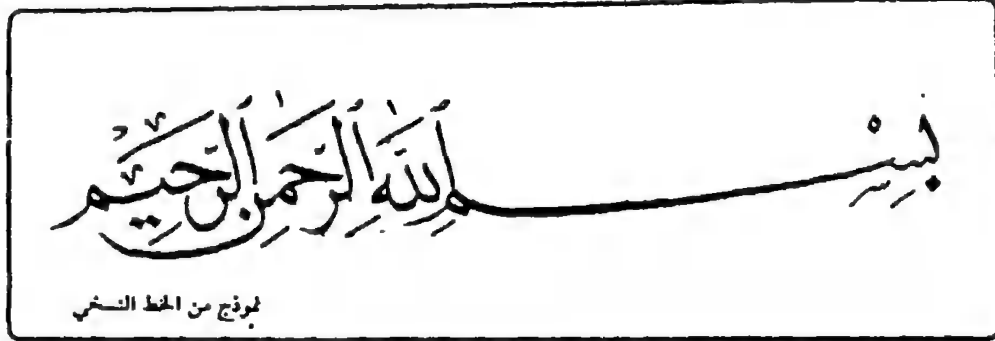 بِسْمِ ٱللَّهِ ٱلرَّحْمَٰنِ ٱلرَّحِيمِ
نموذج من الخط النسخي